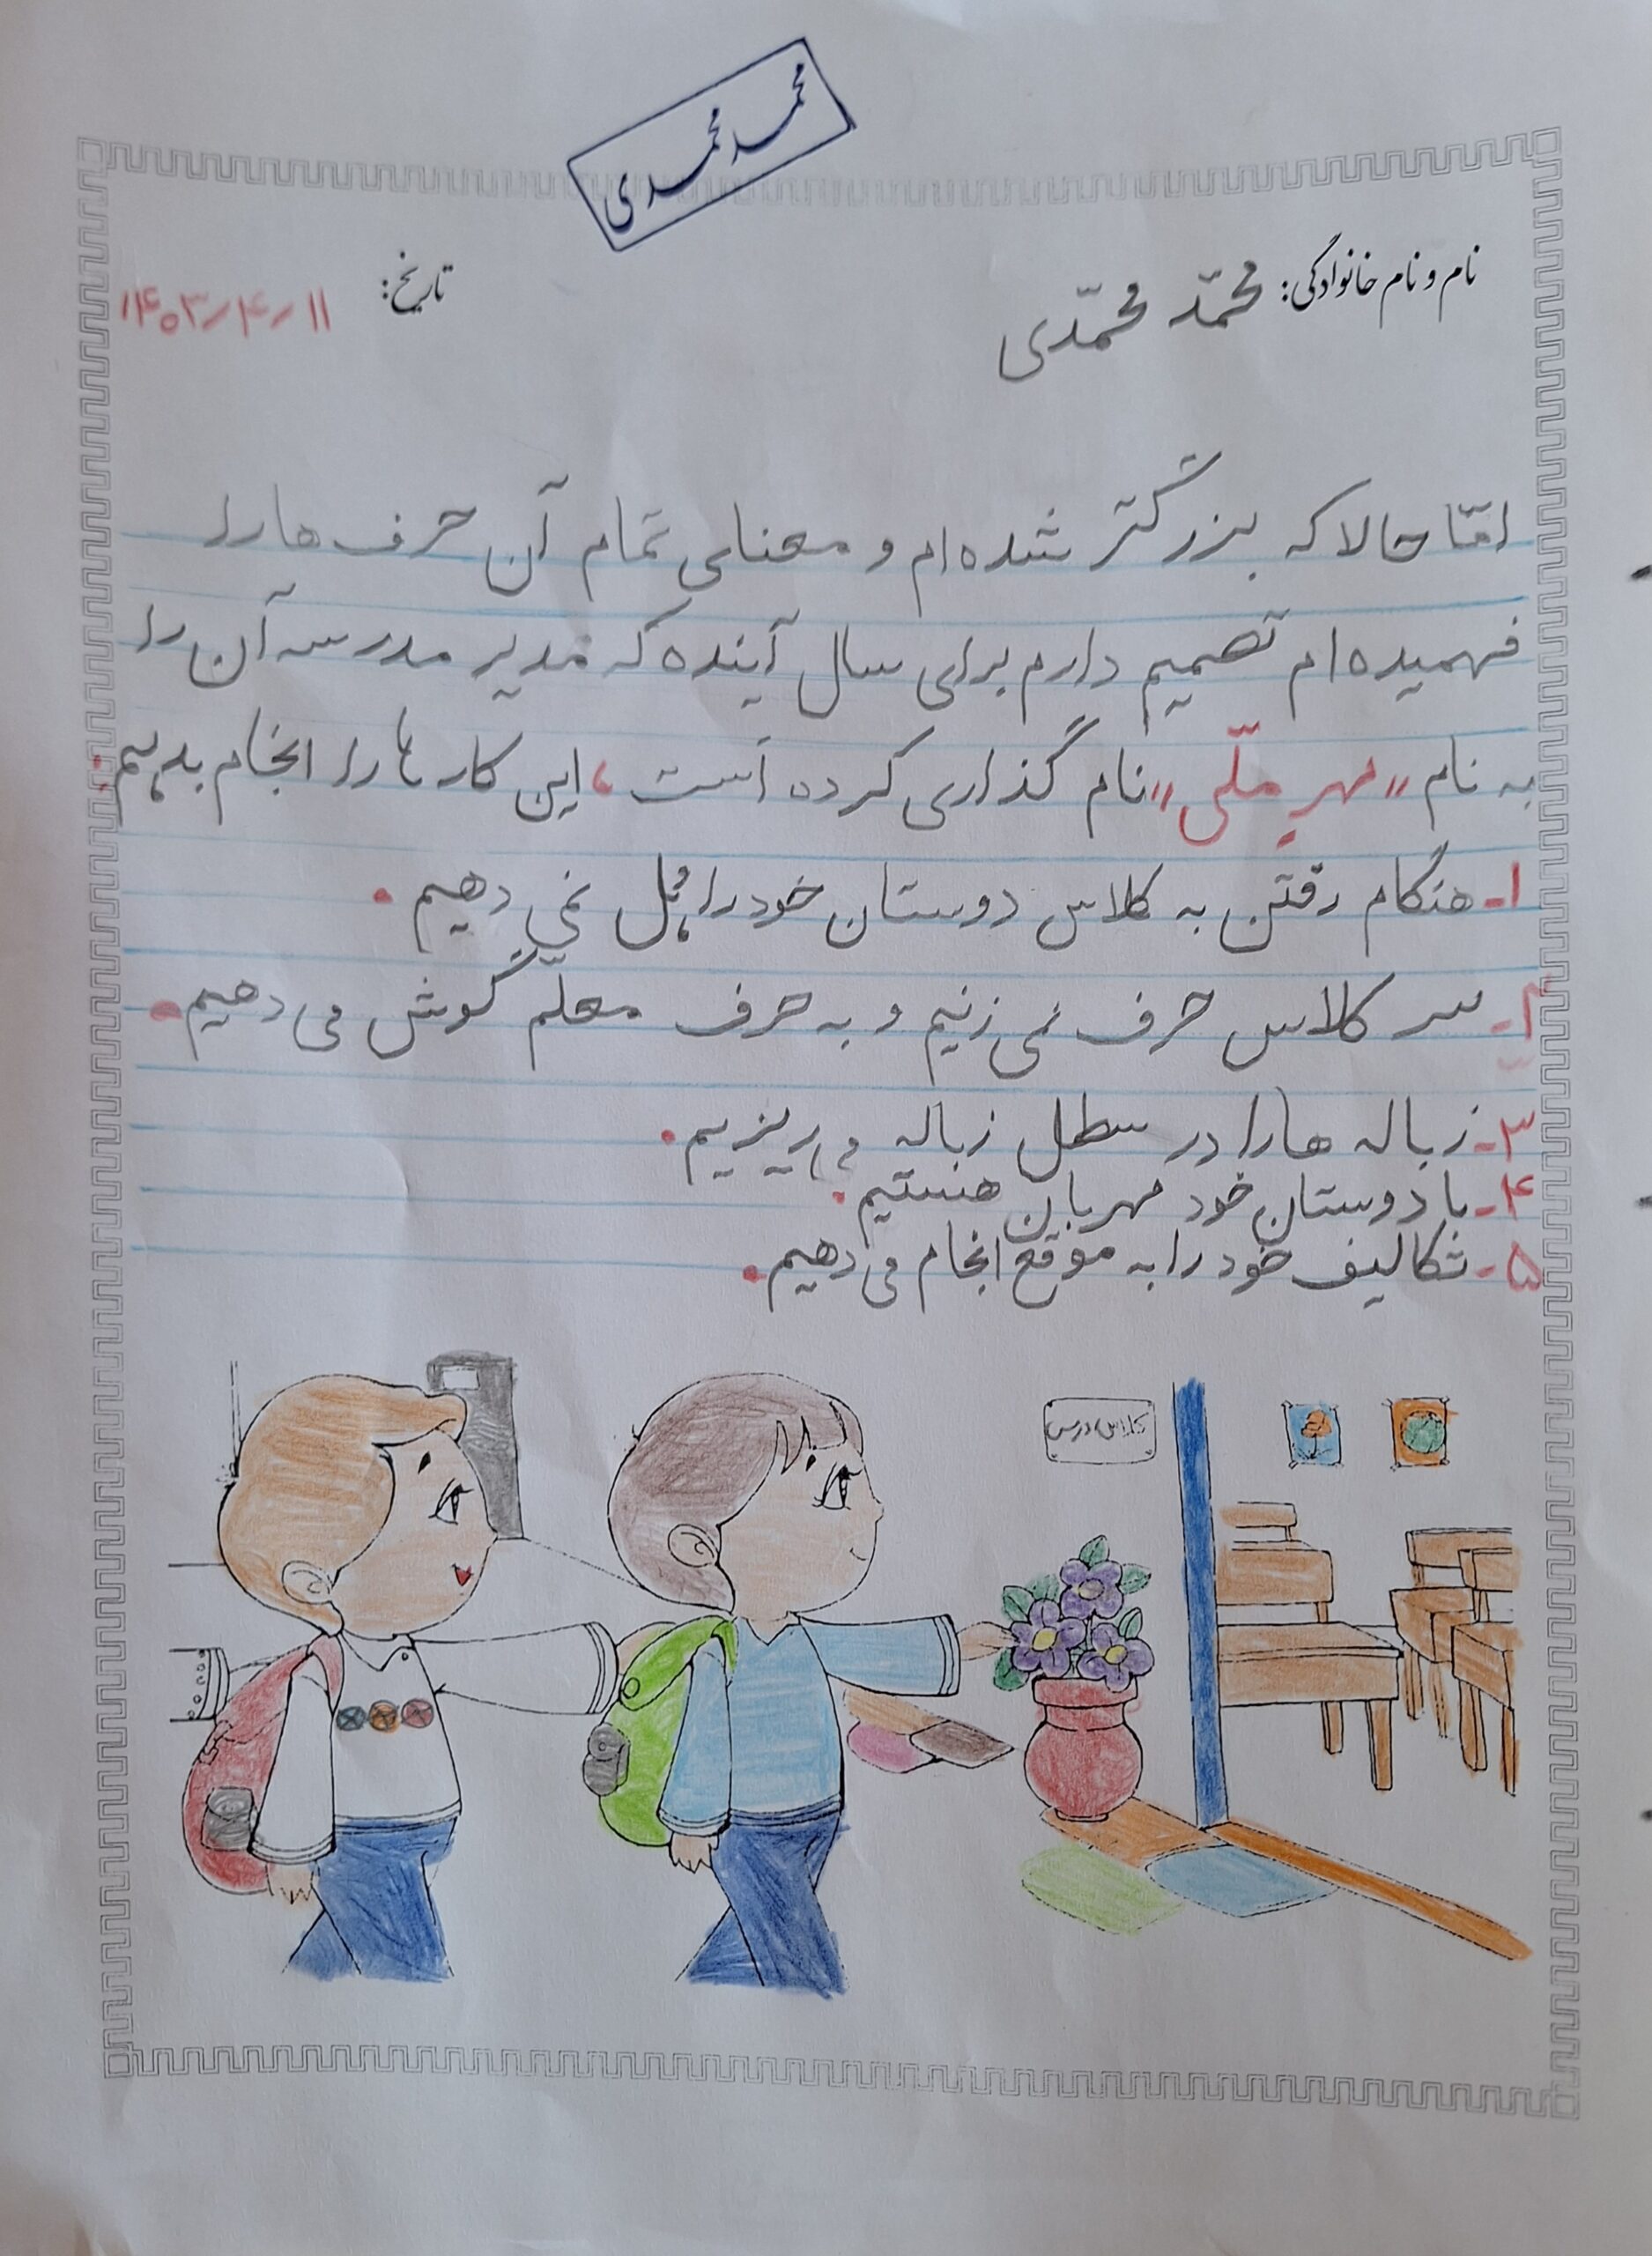 محمد محمدی
نام و نام خانوادگی: محمّد محمّدی
تاریخ: ۱۴۰۳/۴/۱۱
امّا حالا که بزرگتر شده ام و معنای تمام آن حرف ها را
فهمیده ام تصمیم دارم برای سال آینده که مدیر مدرسه آن را
به نام «مهرِ ملّی» نام گذاری کرده است، این کار ها را انجام بدهیم:
۱- هنگام رفتن به کلاس دوستان خود را هُل نمی دهیم.
۲- سر کلاس حرف نمی زنیم و به حرف معلّم گوش می دهیم.
۳- زباله ها را در سطل زباله می ریزیم.
۴- با دوستان خود مهربان هستیم.
۵- تکالیف خود را به موقع انجام می دهیم.
کلاس درس